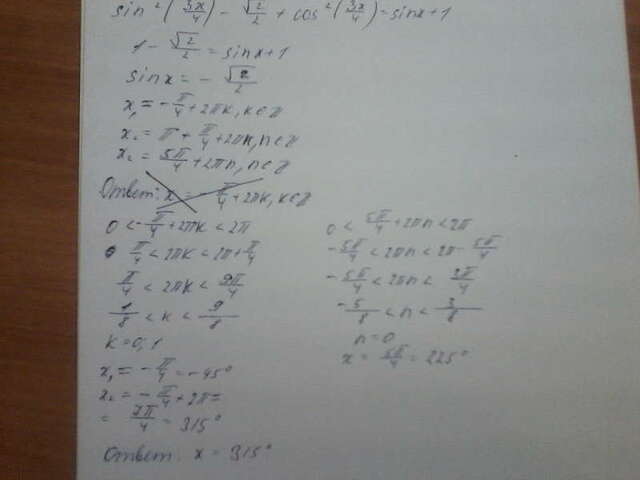 sin²(3x/4) - √2/2 + cos²(3x/4) = sinx+1
1 - √2/2 = sinx+1
sinx = - √2/2
x₁ = -π/4 + 2πk, k∈Z
x₂ = π + π/4 + 2πn, n∈Z
x₂ = 5π/4 + 2πn, n∈Z
Ответ: x = -π/4 + 2πk, k∈Z
0 < -π/4 + 2πk < 2π
π/4 < 2πk < 2π + π/4
π/4 < 2πk < 9π/4
1/8 < k < 9/8
k = 0, 1
x₁ = -π/4 = -45°
x₂ = -π/4 + 2π =
= 7π/4 = 315°
Ответ: x = 315°
0 < 5π/4 + 2πn < 2π
-5π/4 < 2πn < 2π - 5π/4
-5π/4 < 2πn < 3π/4
-5/8 < n < 3/8
n = 0
x = 5π/4 = 225°